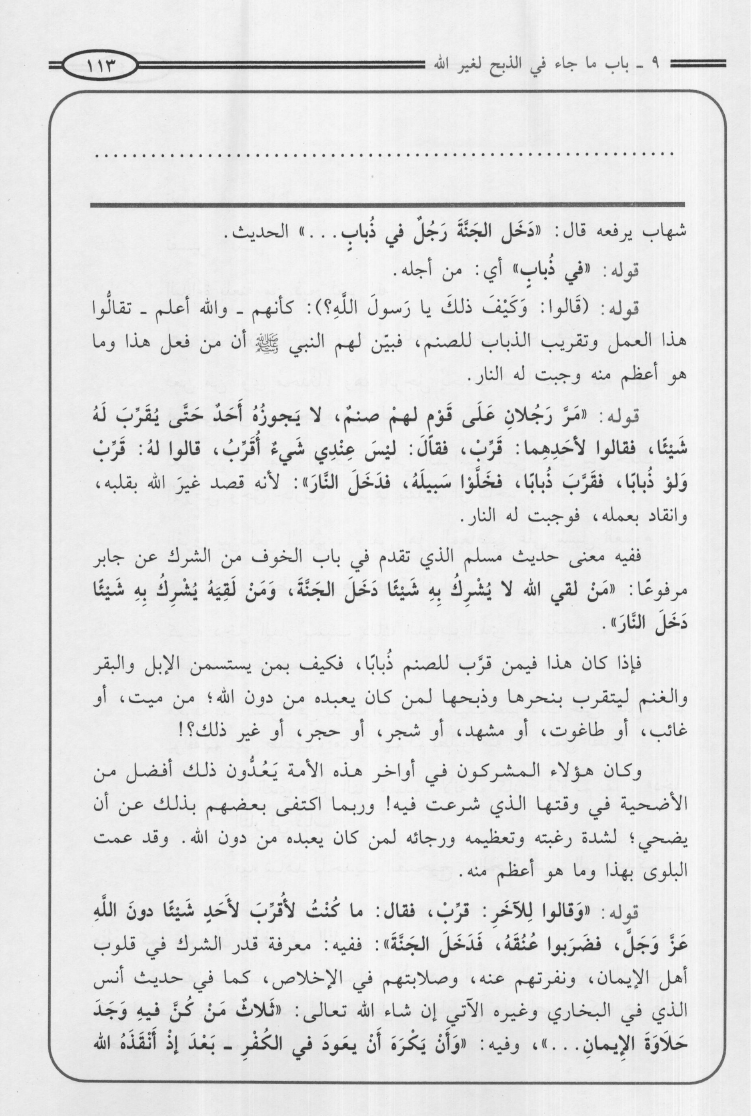 ٩ ـ باب ما جاء في الذبح لغير الله
١١٣
................................................................
شهاب يرفعه قال: «دَخَل الجَنَّةَ رَجُلٌ في ذُبابٍ...» الحديث.
قوله: «في ذُبابٍ» أي: من أجله.
قوله: (قَالوا: وَكَيْفَ ذلكَ يا رَسولَ اللَّهِ؟): كأنهم ـ والله أعلم ـ تقالُّوا
هذا العمل وتقريب الذباب للصنم، فبيّن لهم النبي ﷺ أن من فعل هذا وما
هو أعظم منه وجبت له النار.
قوله: «مَرَّ رَجُلانِ عَلَى قَوْمٍ لهمْ صنمٌ، لا يَجوزُهُ أَحَدٌ حَتَّى يُقَرِّبَ لَهُ
شَيْئًا، فقالوا لأحَدِهِما: قَرِّبْ، فقاَلَ: ليْسَ عِنْدِي شَيءٌ أُقَرِّبُ، قالوا لهُ: قَرِّبْ
وَلوْ ذُبابًا، فقَرَّبَ ذُبابًا، فخَلَّوْا سَبيلَهُ، فدَخَلَ النَّارَ»: لأنه قصد غيرَ الله بقلبه،
وانقاد بعمله، فوجبت له النار.
ففيه معنى حديث مسلم الذي تقدم في باب الخوف من الشرك عن جابر
مرفوعًا: «مَنْ لقي الله لا يُشْرِكُ بِهِ شَيْئًا دَخَلَ الجَنَّةَ، وَمَنْ لَقِيَهُ يُشْرِكُ بِهِ شَيْئًا
دَخَلَ النَّارَ».
فإذا كان هذا فيمن قرَّب للصنم ذُبابًا، فكيف بمن يستسمن الإبل والبقر
والغنم ليتقرب بنحرها وذبحها لمن كان يعبده من دون الله؛ من ميت، أو
غائب، أو طاغوت، أو مشهد، أو شجر، أو حجر، أو غير ذلك؟!
وكان هؤلاء المشركون في أواخر هذه الأمة يَعُدُّون ذلك أفضل من
الأضحية في وقتها الذي شرعت فيه! وربما اكتفى بعضهم بذلك عن أن
يضحي؛ لشدة رغبته وتعظيمه ورجائه لمن كان يعبده من دون الله. وقد عمت
البلوى بهذا وما هو أعظم منه.
قوله: «وَقالوا لِلآخَرِ: قرِّبْ، فقال: ما كُنْتُ لأُقرِّبَ لأَحَدٍ شَيْئًا دونَ اللَّهِ
عَزَّ وَجَلَّ، فضرَبوا عُنُقَهُ، فَدَخَلَ الجَنَّةَ»: ففيه: معرفة قدر الشرك في قلوب
أهل الإيمان، ونفرتهم عنه، وصلابتهم في الإخلاص، كما في حديث أنس
الذي في البخاري وغيره الآتي إن شاء الله تعالى: «ثَلاثٌ مَنْ كُنَّ فيهِ وَجَدَ
حَلاوَةَ الإيمانِ...»، وفيه: «وَأَنْ يَكْرَهَ أَنْ يعودَ في الكُفْرِ ـ بَعْدَ إذْ أَنْقَذَهُ الله